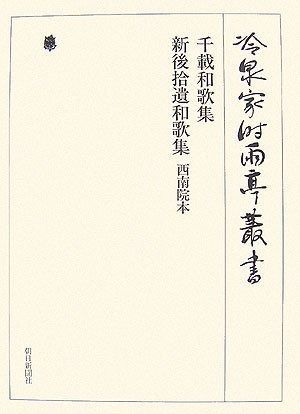 冷泉家時雨亭叢書
千載和歌集
新後拾遺和歌集 西南院本
朝日新聞社